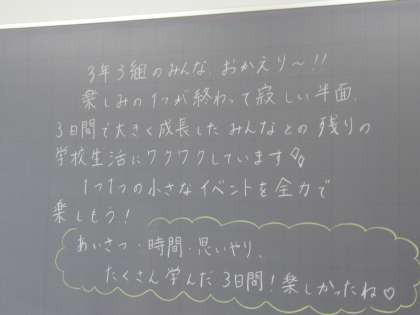 3年3組のみんな、おかえり〜!!
楽しみの1つが終わって寂しい半面、
3日間で大きく成長したみんなとの残りの
学校生活にワクワクしています
1つ1つの小さなイベントを全力で
楽しもう!
あいさつ・時間・思いやり、
たくさん学んだ3日間!楽しかったね♡